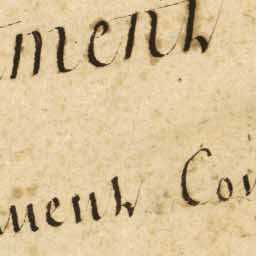 ment
ment Coi